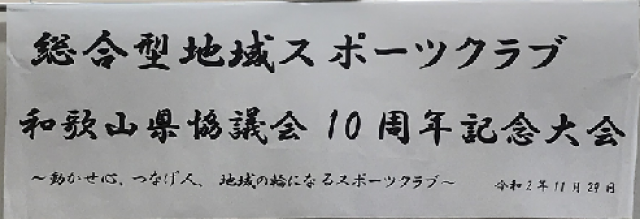 総合型地域スポーツクラブ
和歌山県協議会 10周年記念大会
～動かせ心、つなげ人、地域の輪になるスポーツクラブ～ 令和2年11月29日